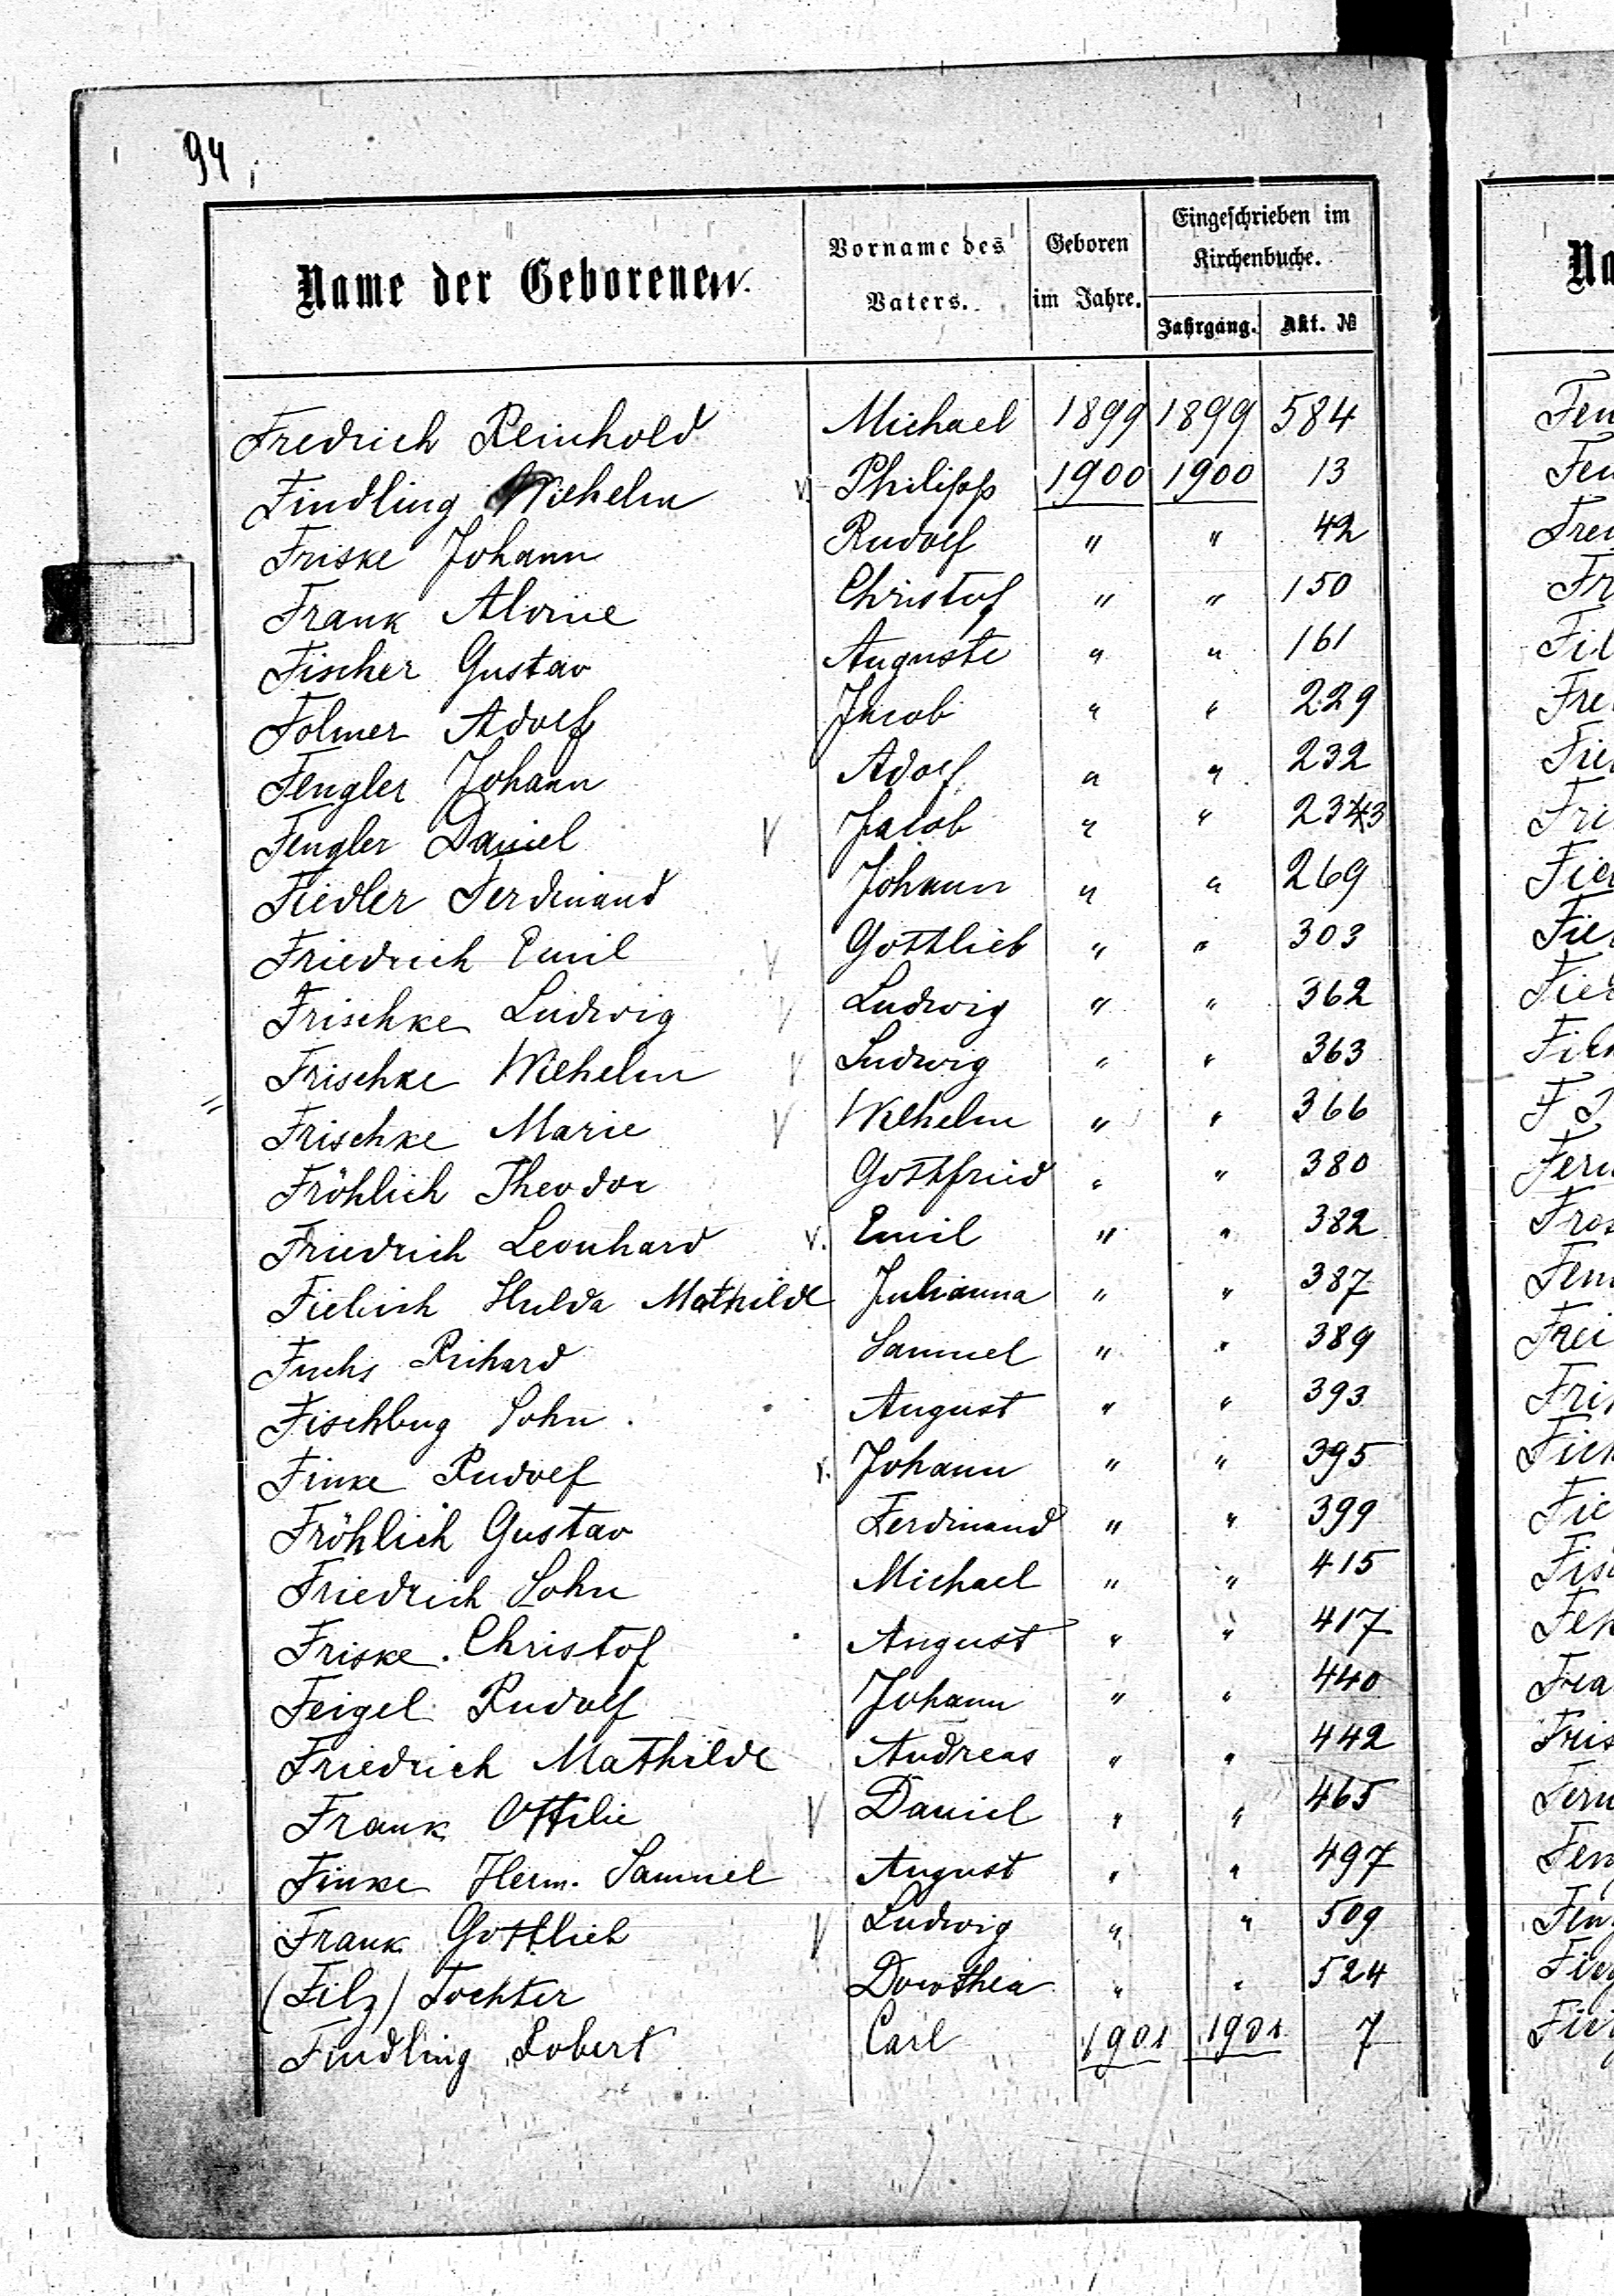 94
Name der Geborenen.
Vorname des Vaters.
Geboren im Jahre.
Eingeschrieben im Kirchenbuche.
Jahrgang. Akt. №
Fredrich Reinhold Michael 1899 1899 584
Findling Wilhelm v. Philipp 1900 1900 13
Friske Johann Rudolf " " 42
Frank Alvine Christof " " 150
Fischer Gustav Auguste " " 161
Folmer Adolf Jacob " " 229
Fengler Johann Adolf " " 232
Fengler Daniel V Jacob " " 233
Fiedler Ferdinand Johann " " 269
Friedrich Emil V Gottlieb " " 303
Frischke Ludwig V Ludwig " " 362
Frischke Wilhelm V Ludwig " " 363
Frischke Marie V Wilhelm " " 366
Fröhlich Theodor Gottfried " " 380
Friedrich Leonhard v. Emil " " 382
Fiebich Hulda Mathilde Julianna " " 387
Fuchs Richard Samuel " " 389
Sohn August " " 393
Finke Rudolf v. Johann " " 395
Fröhlich Gustav Ferdinand " " 399
Friedrich Sohn Michael " " 415
Friske Christof August " " 417
Feigel Rudolf Johann " " 440
Friedrich Mathilde Andreas " " 442
Frank Ottilie V Daniel " " 465
Finke Herm. Samuel August " " 497
Frank Gottlieb V Ludwig " " 509
(Filz) Tochter Dorothea " " 524
Findling Robert Carl 1901 1901 7